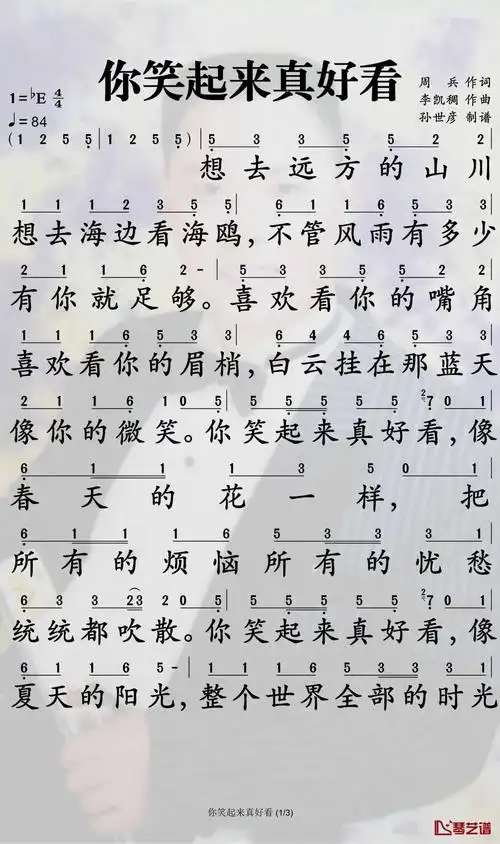 你笑起来真好看
周兵 作词
李凯稠 作曲
孙世彦 制谱
1=♭E 4/4
♩=84
(1 2 5 5 | 1 2 5 5) | 5 3 3 5 5 2 2
想去远方的山川
1 1 1 2 3 5 5 | 6 1 1 6 5 3 3
想去海边看海鸥，不管风雨有多少
2 1 1 6 2- | 5 3 3 5 5 2 2
有你就足够。喜欢看你的嘴角
1 1 1 6 5 3 3 | 6 4 4 6 5 3 3
喜欢看你的眉梢，白云挂在那蓝天
2 1 1 6 1 0 5 | 5 5 5 5 7 0 1
像你的微笑。你笑起来真好看，像
6 1 1 1 3 5 0 1
春天的花一样，把
6 1 1 1 6 5 3 3 1
所有的烦恼所有的忧愁
6 3 3 2 3 2 0 5 | 5 5 5 5 7 0 1
统统都吹散。你笑起来真好看，像
6 1 1 6 5- | 1 1 1 6 5 3 3 3 1
夏天的阳光，整个世界全部的时光
你笑起来真好看 (1/3)
琴艺谱